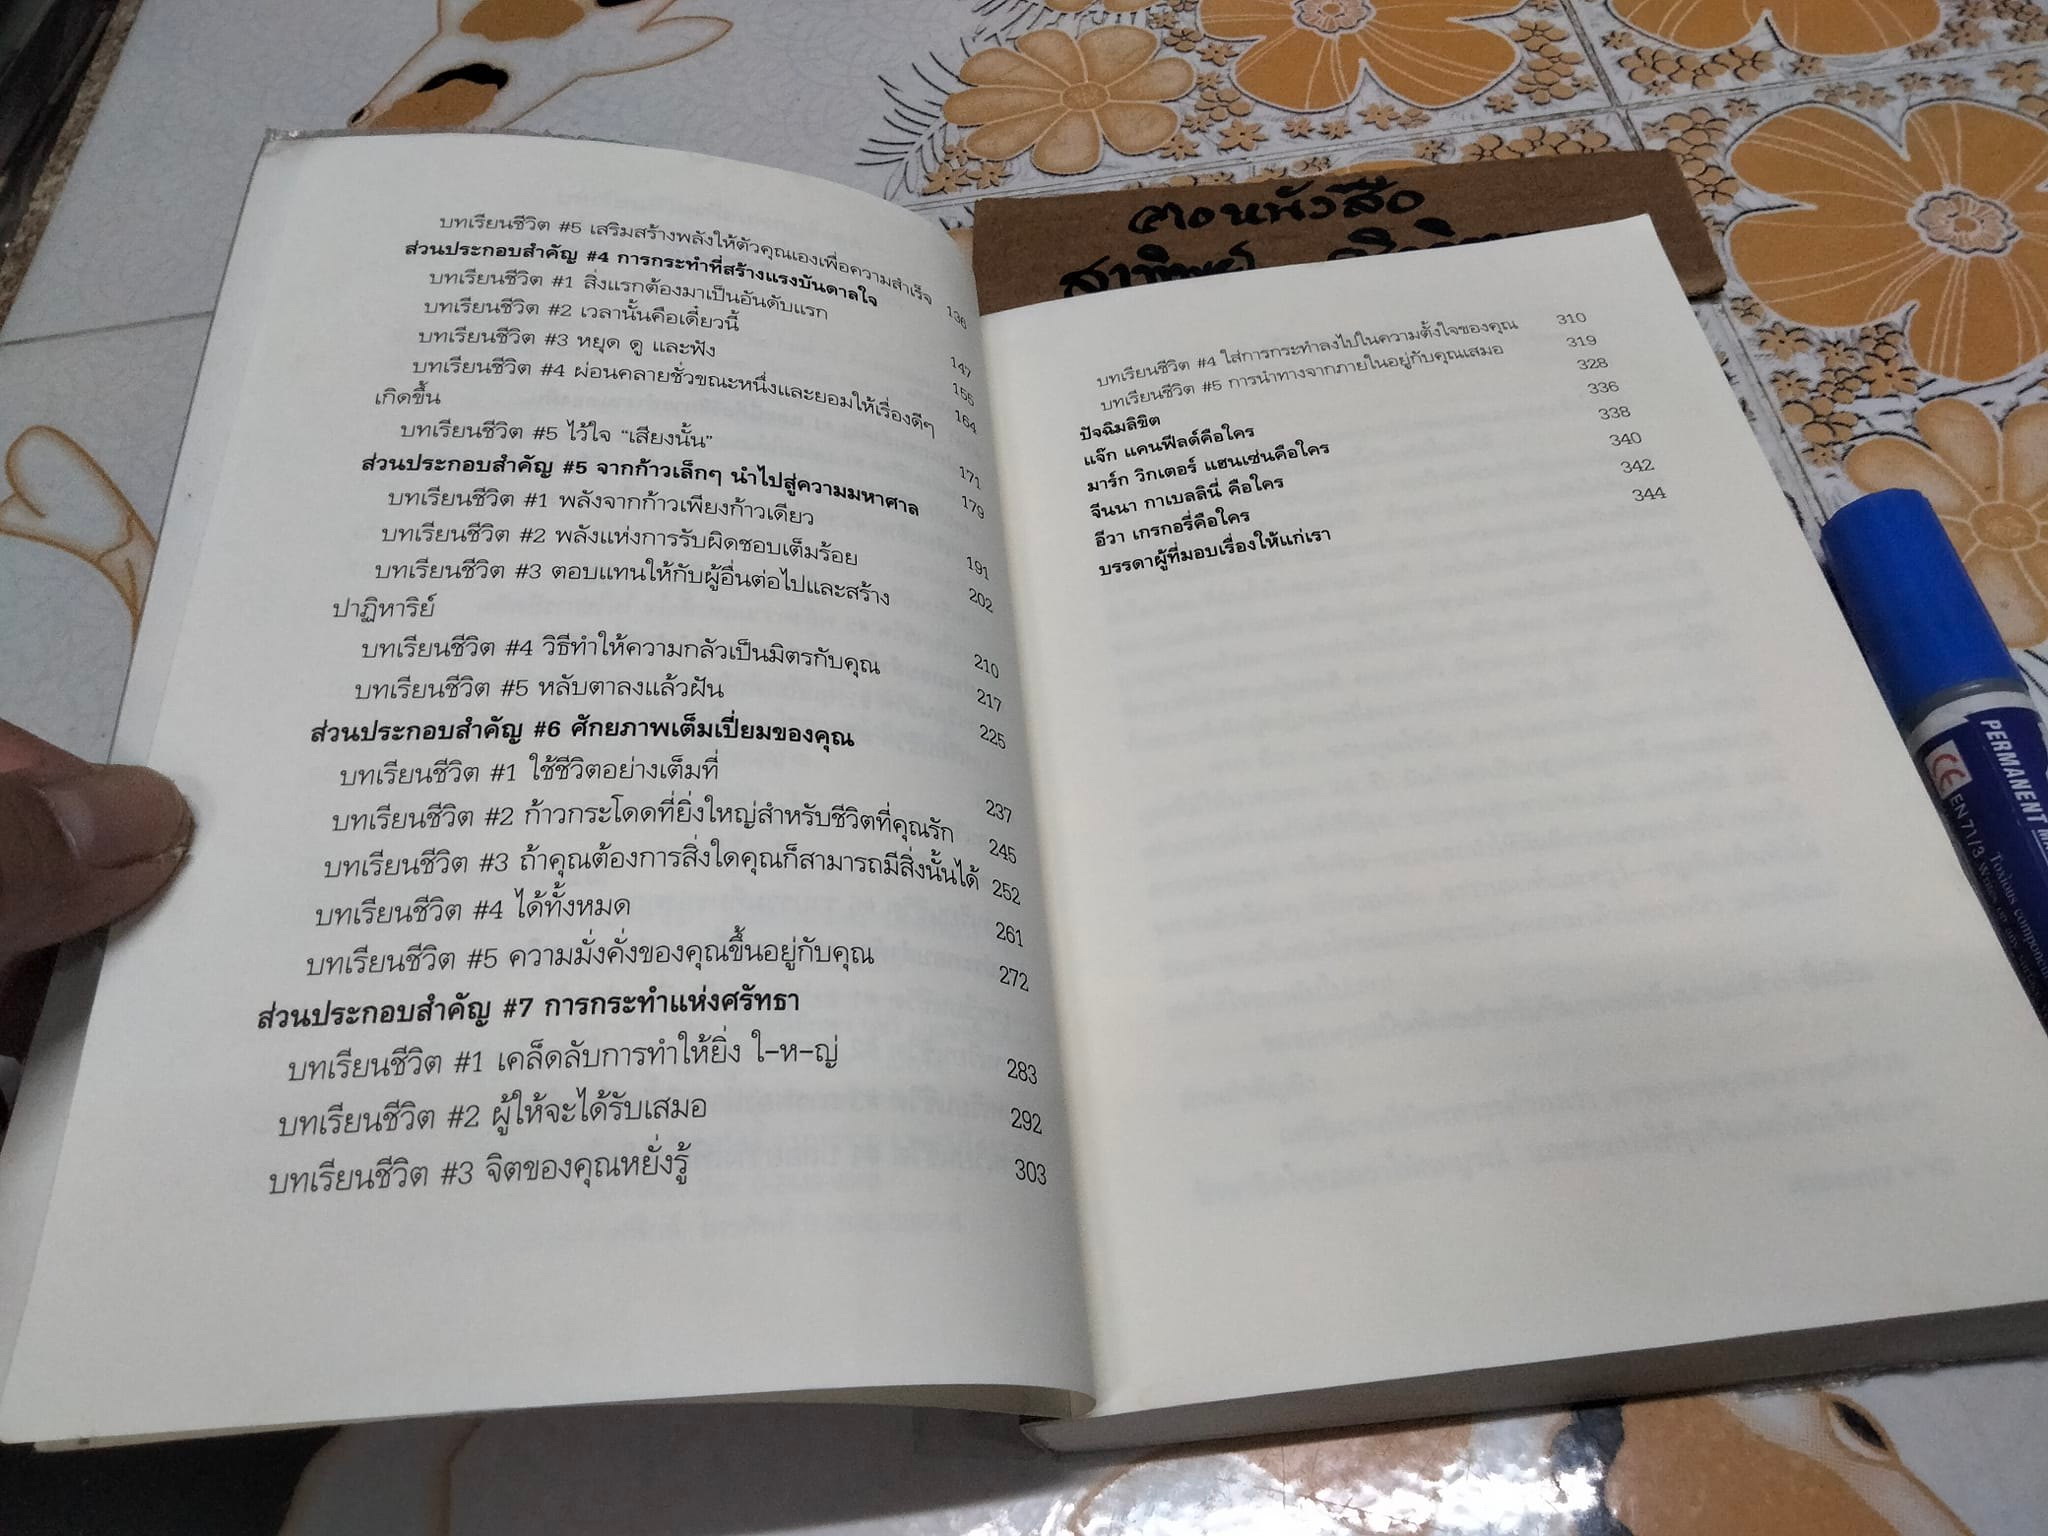 บทเรียนชีวิต #5 เสริมสร้างพลังให้ตัวคุณเองเพื่อความสำเร็จ 136
ส่วนประกอบสำคัญ #4 การกระทำที่สร้างแรงบันดาลใจ
บทเรียนชีวิต #1 สิ่งแรกต้องมาเป็นอันดับแรก 147
บทเรียนชีวิต #2 เวลานั้นคือเดี๋ยวนี้ 155
บทเรียนชีวิต #3 หยุด ดู และฟัง 164
บทเรียนชีวิต #4 ผ่อนคลายชั่วขณะหนึ่งและยอมให้เรื่องดีๆ
เกิดขึ้น 171
บทเรียนชีวิต #5 ไว้ใจ “เสียงนั้น” 179
ส่วนประกอบสำคัญ #5 จากก้าวเล็กๆ นำไปสู่ความมหาศาล
บทเรียนชีวิต #1 พลังจากก้าวเพียงก้าวเดียว 191
บทเรียนชีวิต #2 พลังแห่งการรับผิดชอบเต็มร้อย 202
บทเรียนชีวิต #3 ตอบแทนให้กับผู้อื่นต่อไปและสร้าง
ปาฏิหาริย์ 210
บทเรียนชีวิต #4 วิธีทำให้ความกลัวเป็นมิตรกับคุณ 217
บทเรียนชีวิต #5 หลับตาลงแล้วฝัน 225
ส่วนประกอบสำคัญ #6 ศักยภาพเต็มเปี่ยมของคุณ
บทเรียนชีวิต #1 ใช้ชีวิตอย่างเต็มที่ 237
บทเรียนชีวิต #2 ก้าวกระโดดที่ยิ่งใหญ่สำหรับชีวิตที่คุณรัก 245
บทเรียนชีวิต #3 ถ้าคุณต้องการสิ่งใดคุณก็สามารถมีสิ่งนั้นได้ 252
บทเรียนชีวิต #4 ได้ทั้งหมด 261
บทเรียนชีวิต #5 ความมั่งคั่งของคุณขึ้นอยู่กับคุณ 272
ส่วนประกอบสำคัญ #7 การกระทำแห่งศรัทธา
บทเรียนชีวิต #1 เคล็ดลับการทำให้ยิ่ง ใ-ห-ญ่ 283
บทเรียนชีวิต #2 ผู้ให้จะได้รับเสมอ 292
บทเรียนชีวิต #3 จิตของคุณหยั่งรู้ 303
บทเรียนชีวิต #4 ใส่การกระทำลงไปในความตั้งใจของคุณ 310
บทเรียนชีวิต #5 การนำทางจากภายในอยู่กับคุณเสมอ 319
ปัจฉิมลิขิต 328
แจ๊ก แคนฟีลด์คือใคร 336
มาร์ก วิกเตอร์ แฮนเซ่นคือใคร 338
จีนนา กาเบลลินี่ คือใคร 340
อีวา เกรกอรี่คือใคร 342
บรรดาผู้ที่มอบเรื่องให้แก่เรา 344
หนังสือ
สาทิพย์
PERMANENT
CE EN 71/3